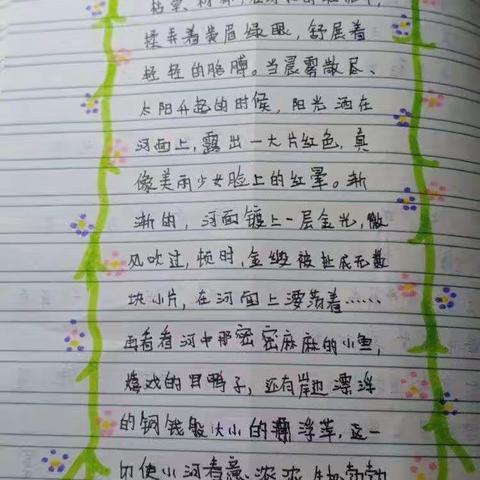 揉弄着黄眉绿眼，舒展着
轻轻的胳膊。当晨雾散尽、
太阳升起的时候，阳光洒在
河面上，露出一大片红色，真
像美丽少女脸上的红晕。渐
渐的，河面镀上一层金光，微
风吹过，顿时，金缎被扯成无数
块小片，在河面上漂荡着……
再看看河中那密密麻麻的小鱼，
嬉戏的野鸭子，还有岸边漂浮
的铜钱般大小的浮萍，这一
切使小河春意浓浓、生机勃勃